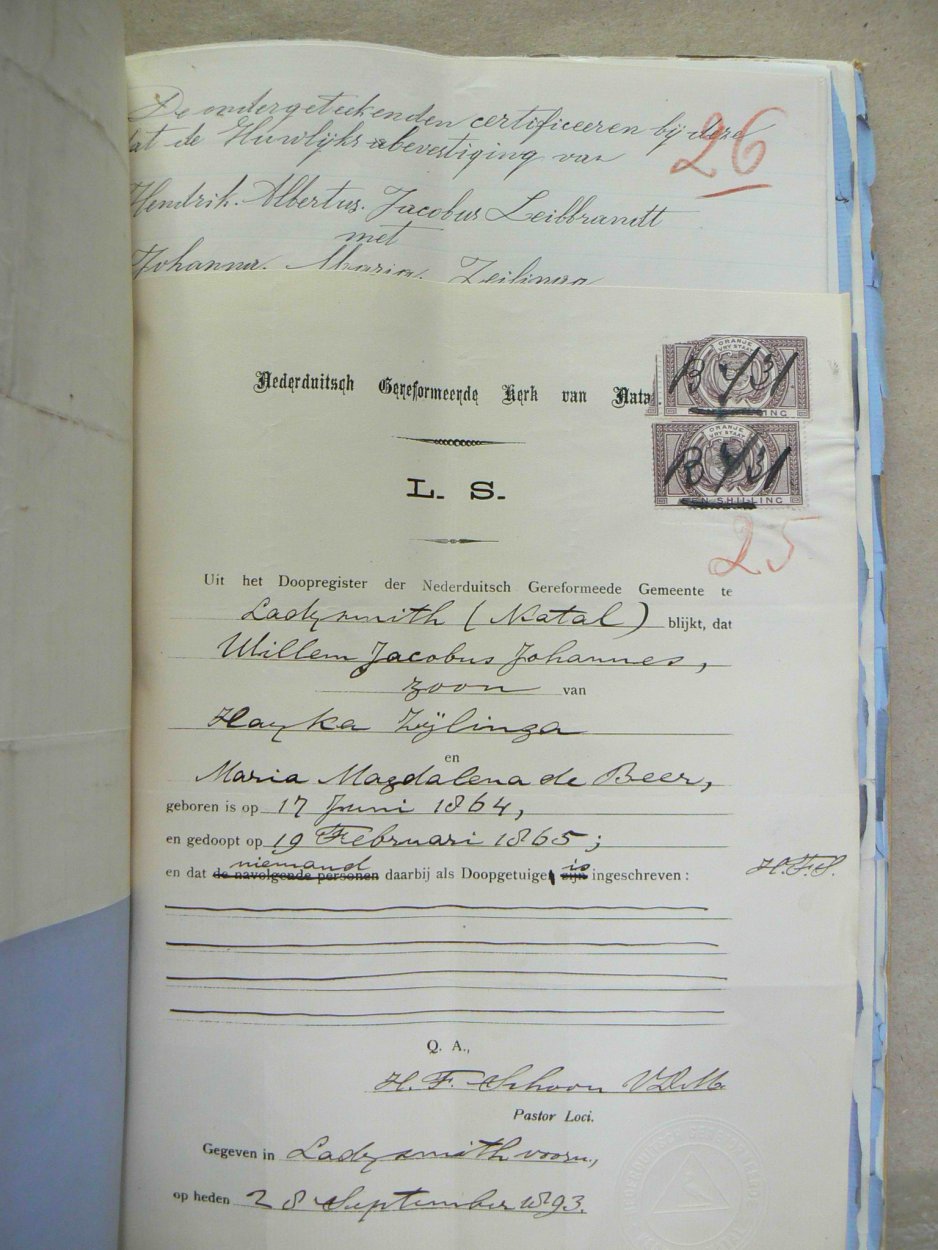 De ondergeteekenden certificeeren bij deze
dat de Huwlijks bevestiging van
26
Hendrik Albertus Jacobus Leibbrandt
met
Johanna Maria Zeilinga
Nederduitsch Gereformeerde Kerk van Nata
ORANJE
VRY STAAT
EEN SHILLING
ORANJE
VRY STAAT
EEN SHILLING
L. S.
25
Uit het Doopregister der Nederduitsch Gereformeede Gemeente te
Ladysmith (Natal) blijkt, dat
Willem Jacobus Johannes,
zoon van
Hayka Zijlinga
en
Maria Magdalena de Beer,
geboren is op 17 Juni 1864,
en gedoopt op 19 Februari 1865;
niemand is
en dat de navolgende personen daarbij als Doopgetuige zijn ingeschreven :
H.F.S.
Q. A.,
H. F. Schoon V.D.M.
Pastor Loci.
Gegeven in Ladysmith voorn.,
op heden 28 September 1893.